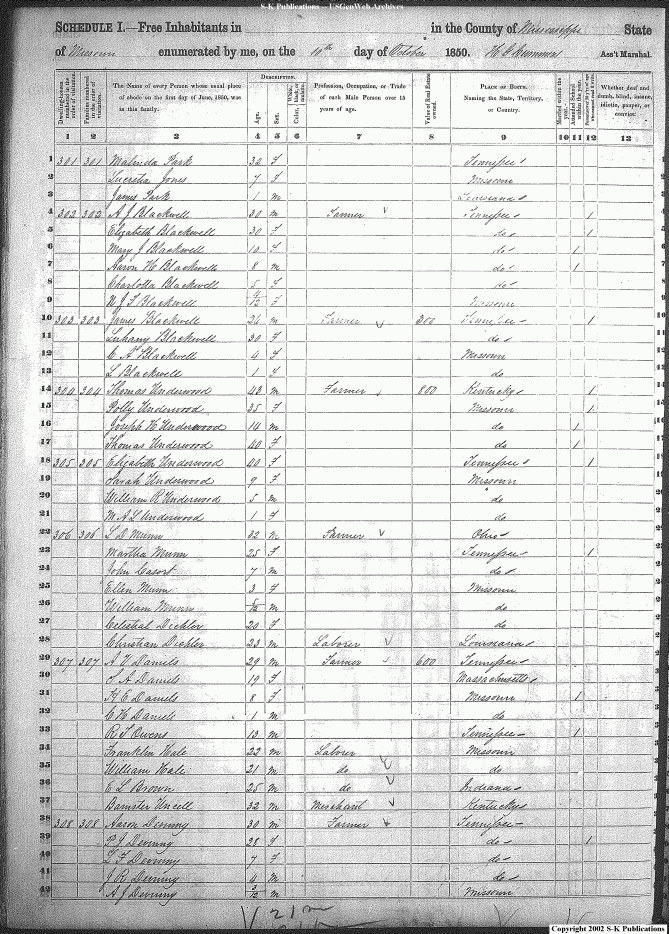 S-K Publications - USGeoWeb Archives
SCHEDULE I.—Free Inhabitants in in the County of Mississippi State
of Missouri enumerated by me, on the 10th day of October 1850. Ass't Marshal.
Dwelling-houses numbered in the order of visitation. Families numbered in the order of visitation. The Name of every Person whose usual place of abode on the first day of June, 1850, was in this family. DESCRIPTION. Age. Sex. Color, White, black, or mulatto. Profession, Occupation, or Trade of each Male Person over 15 years of age. Value of Real Estate owned. PLACE OF BIRTH. Naming the State, Territory, or Country. Married within the year. Attended School within the year. Whether deaf and dumb, blind, insane, idiotic, pauper, or convict.
1 2 3 4 5 6 7 8 9 10 11 12 13
1 301 301 Malinda Park 32 F Tennessee
2 Lucretia Jones 7 F Missouri
3 James Park 1 m Louisiana
4 302 302 A J Blackwell 30 m Farmer Tennessee 1
5 Elizabeth Blackwell 30 F do 1
6 Mary J Blackwell 10 F do 1
7 Aaron H Blackwell 8 m do 1
8 Charlotta Blackwell 5 F do
9 N J F Blackwell F Missouri
10 303 303 James Blackwell 26 m Farmer 300 Tennessee 1
11 Blackwell 30 F do
12 C A Blackwell 4 F Missouri
13 L Blackwell 1 F do
14 304 304 Thomas Underwood 43 m Farmer 800 Kentucky 1
15 Polly Underwood 35 F Missouri 1
16 Joseph H Underwood 14 m do 1
17 Thomas Underwood 40 F do 1
18 305 305 Elizabeth Underwood 40 F Tennessee 1
19 Sarah Underwood 9 F Missouri
20 William R Underwood 5 m do
21 M A L Underwood 1 F do
22 306 306 L D Munn 32 m Farmer Ohio
23 Martha Munn 25 F Tennessee 1
24 John 7 m do
25 Ellen Munn 3 F Missouri
26 William Munn 5/12 m do
27 Celestial Dickler 20 F do
28 Christian Dickler 23 m Laborer Louisiana
29 307 307 A V Daniels 29 m Farmer 600 Tennessee
30 S A Daniels 19 F Massachusetts
31 K E Daniels 8 F Missouri 1
32 C H Daniels 1 m do
33 R F Owens 13 m Tennessee 1
34 Franklin Hale 22 m Laborer Missouri
35 William Hale 21 m do do
36 E L Brown 25 m do Indiana
37 Banister Uncell 32 m Merchant Kentucky
38 308 308 Aaron Deviny 30 m Farmer Tennessee
39 P J Deviny 28 F do 1
40 L F Deviny 7 F do
41 J R Deviny 4 m do
42 A J Deviny 3/12 m Missouri
21 m
Copyright 2002 S-K Publications